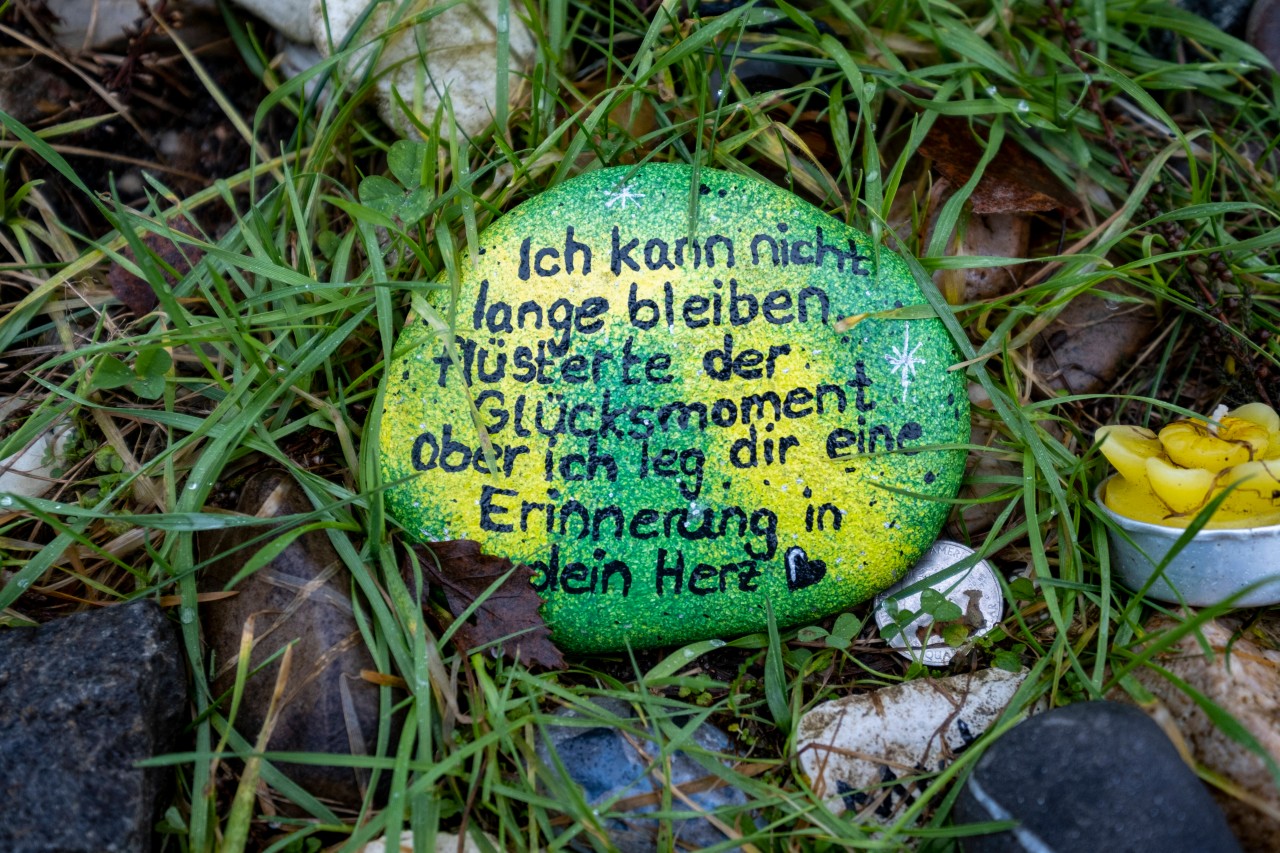 Ich kann nicht
lange bleiben,
flüsterte der
Glücksmoment
aber ich leg dir eine
Erinnerung in
dein Herz